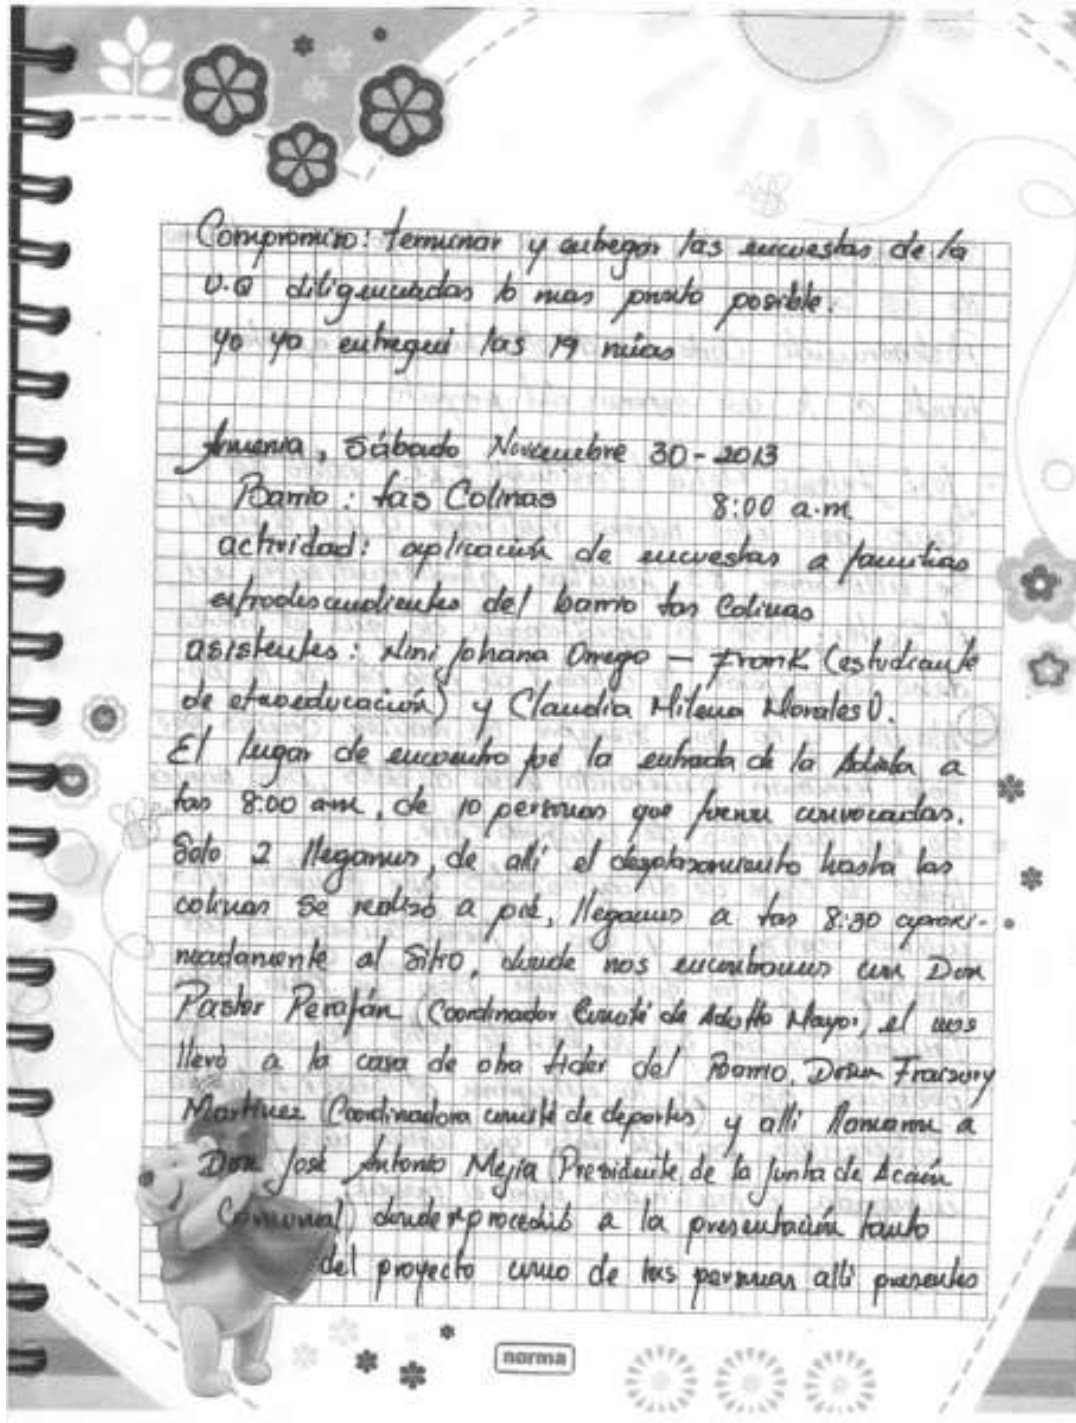 Compromiso: terminar y entregar las encuestas de la
U.Q diligenciadas lo mas pronto posible.
yo ya entregué las 19 mias
Armenia, Sábado Noviembre 30-2013
Barrio: Las Colinas 8:00 a.m
actividad: aplicación de encuestas a familias
afrodescendientes del barrio las Colinas
asistentes: Nini Johana Orrego — Frank (estudiante
de etnoeducación) y Claudia Milena Morales V.
El lugar de encuentro fué la entrada de la Adiela a
las 8:00 am, de 10 personas que fueron convocadas.
Solo 2 llegamos, de allí el desplazamiento hasta las
colinas se realizó a pié, llegamos a las 8:30 aproxi-
madamente al Sitio, donde nos encontramos con Don
Pastor Perafán (Coordinador Comité de Adulto Mayor) el nos
llevó a la casa de otra lider del Barrio, Doña Fraisury
Martinez (Coordinadora comité de deportes) y allí llamaron a
Don José Antonio Mejia (Presidente de la Junta de Acción
Comunal) donde se procedió a la presentación tanto
del proyecto como de las personas allí presentes
norma